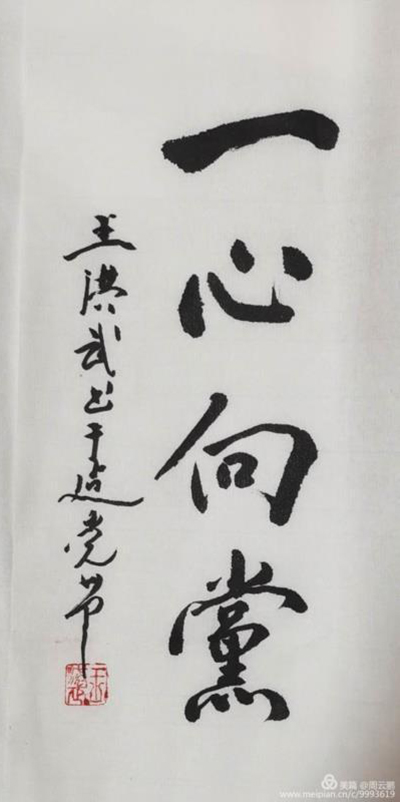 一心向黨
王洪武书于建党节
美篇 @周云鹏
www.meipian.cn/c/9993619